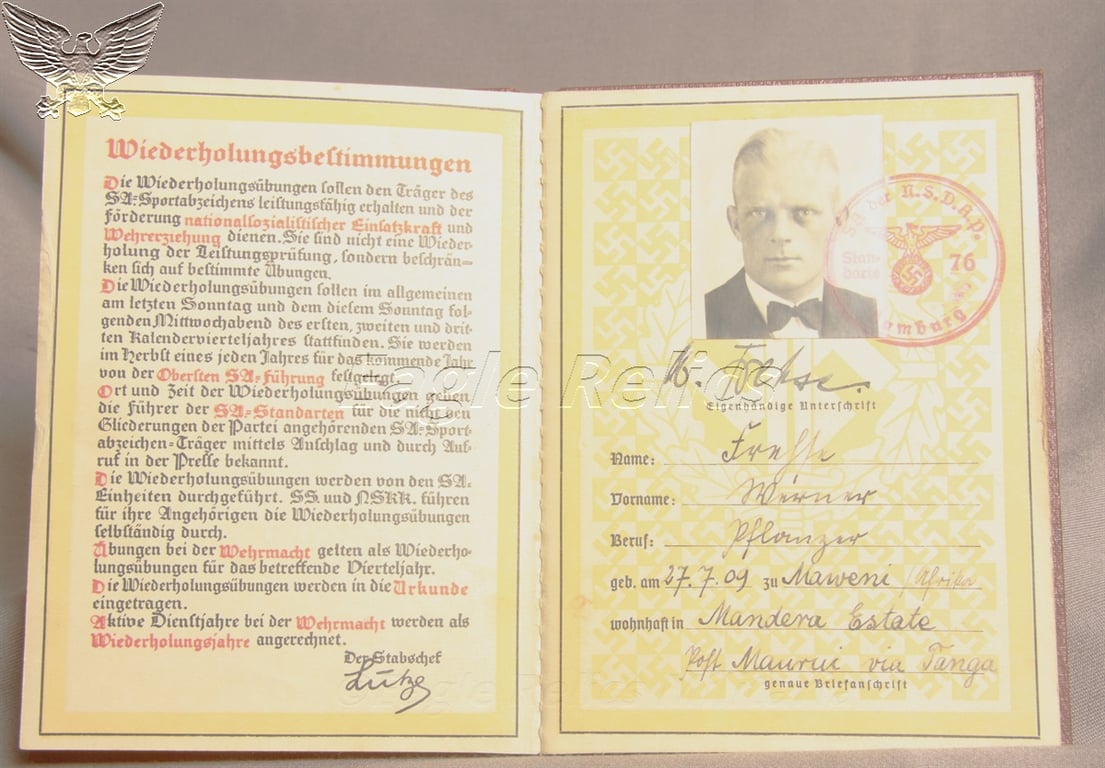 Wiederholungsbestimmungen
Die Wiederholungsübungen sollen den Träger des
SA-Sportabzeichens leistungsfähig erhalten und der
Förderung nationalsozialistischer Einsatzkraft und
Wehrerziehung dienen. Sie sind nicht eine Wieder-
holung der Leistungsprüfung, sondern beschrän-
ken sich auf bestimmte Übungen.
Die Wiederholungsübungen sollen im allgemeinen
am letzten Sonntag und dem diesem Sonntag fol-
genden Mittwochabend des ersten, zweiten und drit-
ten Kalendervierteljahres stattfinden. Sie werden
im Herbst eines jeden Jahres für das kommende Jahr
von der Obersten SA-Führung festgelegt.
Ort und Zeit der Wiederholungsübungen geben
die Führer der SA-Standarten für die nicht den
Gliederungen der Partei angehörenden SA-Sport-
abzeichen-Träger mittels Anschlag und durch Auf-
ruf in der Presse bekannt.
Die Wiederholungsübungen werden von den SA-
Einheiten durchgeführt. SS. und NSKK. führen
für ihre Angehörigen die Wiederholungsübungen
selbständig durch.
Übungen bei der Wehrmacht gelten als Wiederho-
lungsübungen für das betreffende Vierteljahr.
Die Wiederholungsübungen werden in die Urkunde
eingetragen.
Aktive Dienstjahre bei der Wehrmacht werden als
Wiederholungsjahre angerechnet.
Der Stabschef
Lutze
SA der N.S.D.A.P.
Stan-
darte 76
Hamburg
W. Frehse.
Eigenhändige Unterschrift
Name: Frehse
Vorname: Werner
Beruf: Pflanzer
geb. am 27.7.09 zu Maweni /Afrika
wohnhaft in Mandera Estate
Post Maurui via Tanga
genaue Briefanschrift
Eagle Relics
Eagle Relics